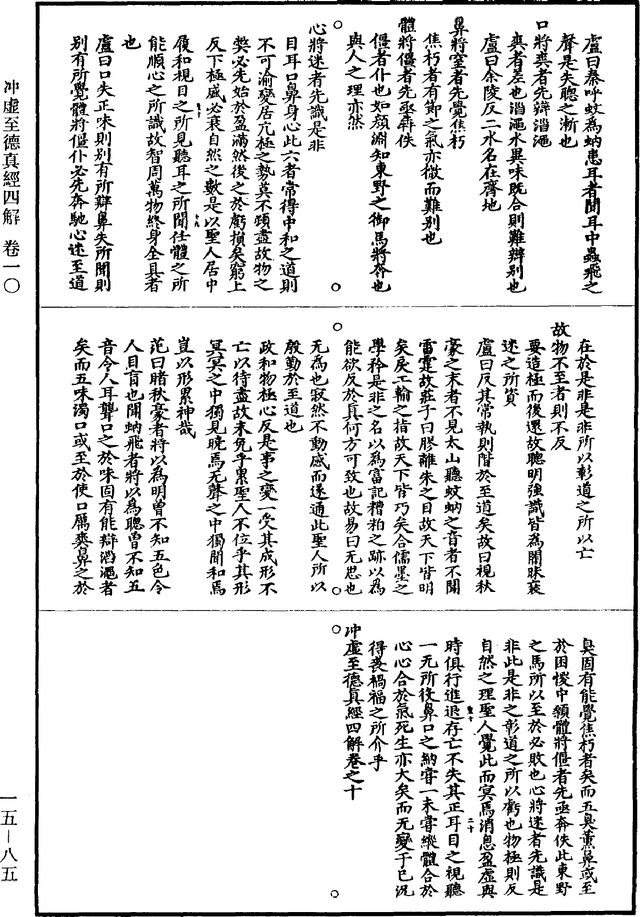 冲虛至德真經四解 卷一〇
一五—八五
盧曰秦呼蚊為蚋患耳者聞耳中蟲飛之
聲是失聰之漸也
口將爽者先辯淄澠
爽者差也淄澠水異味既合則難辯別也
盧曰余陵反二水名在齊地
鼻將窒者先覺焦朽
焦朽者有節之氣亦微而難別也
體將僵者先亟奔佚
僵者仆也如顏淵知東野之御馬將奔也
與人之理亦然
心將迷者先識是非
目耳口鼻身心此六者常得中和之道則
不可渝變居亢極之勢莫不頓盡故物之
弊必先始於盈滿然後之於虧損矣窮上
反下極盛必衰自然之數是以聖人居中
履和視目之所見聽耳之所聞任體之所
能順心之所識故智周萬物終身全具者
也
盧曰口失正味則別有所辯鼻失所聞則
別有所覺體將僵仆必先奔馳心迷至道
在於是非是非所以彰道之所以亡
故物不至者則不反
要造極而後還故聰明強識皆為闇昧衰
迷之所資
盧曰反其常執則階於至道矣故曰視秋
豪之末者不見太山聽蚊蚋之音者不聞
雷霆故莊子曰膠離朱之目故天下皆明
矣戾工輸之指故天下皆巧矣合儒墨之
學矜是非之名以為富記糟粕之跡以為
能欲反於真何方可致也故易曰无思也
无為也寂然不動感而遂通此聖人所以
殷勤於至道也
政和物極心反是事之變一受其成形不
亡以待盡故未免乎累聖人不位乎其形
冥冥之中獨見曉焉无聲之中獨聞和焉
豈以形累神哉
范曰睹秋豪者將以為明曾不知五色令
人目盲也聞蚋飛者將以為聰曾不知五
音令人耳聾口之於味固有能辯淄澠者
矣而五味濁口或至於使口厲爽鼻之於
臭固有能覺焦朽者矣而五臭薰鼻或至
於困惾中顙體將僵者先亟奔佚此東野
之馬所以至於必敗也心將迷者先識是
非此是非之彰道之所以虧也物極則反
自然之理聖人覺此而冥焉消息盈虛與
時俱行進退存亡不失其正耳目之視聽
一无所役鼻口之納嘗一未嘗縱體合於
心心合於氣死生亦大矣而无變于己況
得喪禍福之所介乎
冲虛至德真經四解卷之十